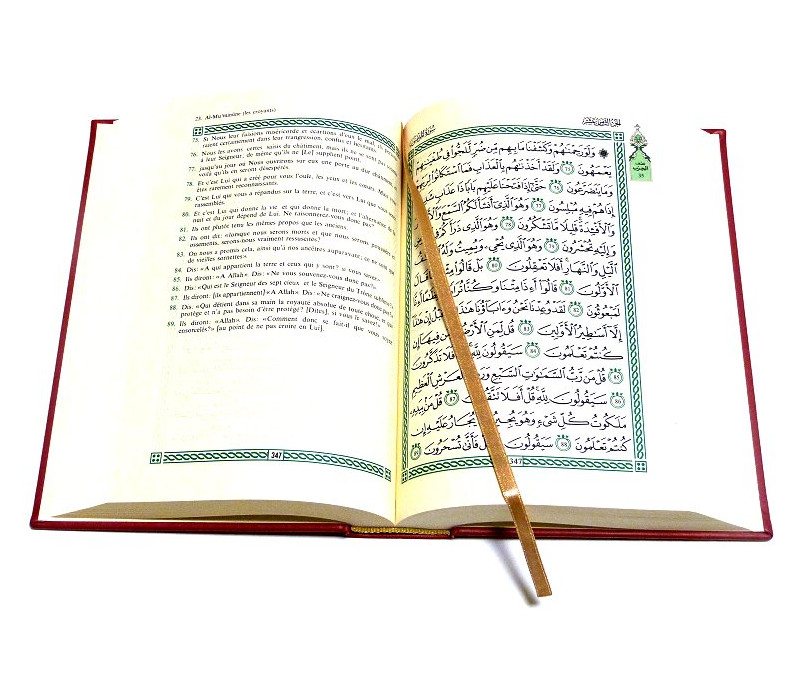 23. Al-Mu'minûne (les croyants)
75. Si Nous leur faisions miséricorde et écartions d'eux le mal, ils
raient certainement dans leur trangression, confus et hésitants.
76. Nous les avons certes saisis du châtiment, mais ils ne se sont pas
à leur Seigneur, de même qu'ils ne [Le] supplient point,
77. jusqu'au jour où Nous ouvrirons sur eux une porte au dur châtiment,
voilà qu'ils en seront désespérés.
78. Et c'est Lui qui a créé pour vous l'ouïe, les yeux et les cœurs. Mais
es rarement reconnaissants.
79. C'est Lui qui vous a répandus sur la terre, et c'est vers Lui que vous
rassemblés.
80. Et c'est Lui qui donne la vie et qui donne la mort; et l'alternance
nuit et du jour dépend de Lui. Ne raisonnerez-vous donc pas?
81. Ils ont plutôt tenu les mêmes propos que les anciens.
82. Ils ont dit: «lorsque nous serons morts et que nous serons poussière et
ossements, serons-nous vraiment ressuscités?
83. On nous a promis cela, ainsi qu'à nos ancêtres auparavant; ce ne sont que
de vieilles sornettes».
84. Dis: «A qui appartient la terre et ceux qui y sont? si vous savez».
85. Ils diront: «A Allah». Dis: «Ne vous souvenez-vous donc pas?»
86. Dis: «Qui est le Seigneur des sept cieux et le Seigneur du Trône sublime?»
87. Ils diront: [ils appartiennent] «A Allah». Dis: «Ne craignez-vous donc pas?»
88. Dis: «Qui détient dans sa main la royauté absolue de toute chose, et qui
protège et n'a pas besoin d'être protégé? [Dites], si vous le savez!»
89. Ils diront: «Allah». Dis: «Comment donc se fait-il que vous soyez
ensorcelés?» [au point de ne pas croire en Lui].
347
۞ وَلَوْ رَحِمْنَٰهُمْ وَكَشَفْنَا مَا بِهِم مِّن ضُرٍّ لَّلَجُّوا۟ فِى طُغْيَٰنِهِمْ
يَعْمَهُونَ ٧٥ وَلَقَدْ أَخَذْنَٰهُم بِٱلْعَذَابِ فَمَا ٱسْتَكَانُوا۟ لِرَبِّهِمْ
وَمَا يَتَضَرَّعُونَ ٧٦ حَتَّىٰٓ إِذَا فَتَحْنَا عَلَيْهِم بَابًا ذَا عَذَابٍ شَدِيدٍ
إِذَا هُمْ فِيهِ مُبْلِسُونَ ٧٧ وَهُوَ ٱلَّذِىٓ أَنشَأَ لَكُمُ ٱلسَّمْعَ وَٱلْأَبْصَٰرَ
وَٱلْأَفْـِٔدَةَ قَلِيلًا مَّا تَشْكُرُونَ ٧٨ وَهُوَ ٱلَّذِى ذَرَأَكُمْ فِى ٱلْأَرْضِ
وَإِلَيْهِ تُحْشَرُونَ ٧٩ وَهُوَ ٱلَّذِى يُحْىِۦ وَيُمِيتُ وَلَهُ ٱخْتِلَٰفُ
ٱلَّيْلِ وَٱلنَّهَارِ أَفَلَا تَعْقِلُونَ ٨٠ بَلْ قَالُوا۟ مِثْلَ مَا قَالَ
ٱلْأَوَّلُونَ ٨١ قَالُوٓا۟ أَءِذَا مِتْنَا وَكُنَّا تُرَابًا وَعِظَٰمًا أَءِنَّا
لَمَبْعُوثُونَ ٨٢ لَقَدْ وُعِدْنَا نَحْنُ وَءَابَآؤُنَا هَٰذَا مِن قَبْلُ إِنْ هَٰذَآ
إِلَّآ أَسَٰطِيرُ ٱلْأَوَّلِينَ ٨٣ قُل لِّمَنِ ٱلْأَرْضُ وَمَن فِيهَآ إِن
كُنتُمْ تَعْلَمُونَ ٨٤ سَيَقُولُونَ لِلَّهِ قُلْ أَفَلَا تَذَكَّرُونَ
٨٥ قُلْ مَن رَّبُّ ٱلسَّمَٰوَٰتِ ٱلسَّبْعِ وَرَبُّ ٱلْعَرْشِ ٱلْعَظِيمِ
٨٦ سَيَقُولُونَ لِلَّهِ قُلْ أَفَلَا تَتَّقُونَ ٨٧ قُلْ مَنۢ بِيَدِهِۦ
مَلَكُوتُ كُلِّ شَىْءٍ وَهُوَ يُجِيرُ وَلَا يُجَارُ عَلَيْهِ إِن
كُنتُمْ تَعْلَمُونَ ٨٨ سَيَقُولُونَ لِلَّهِ قُلْ فَأَنَّىٰ تُسْحَرُونَ ٨٩
347